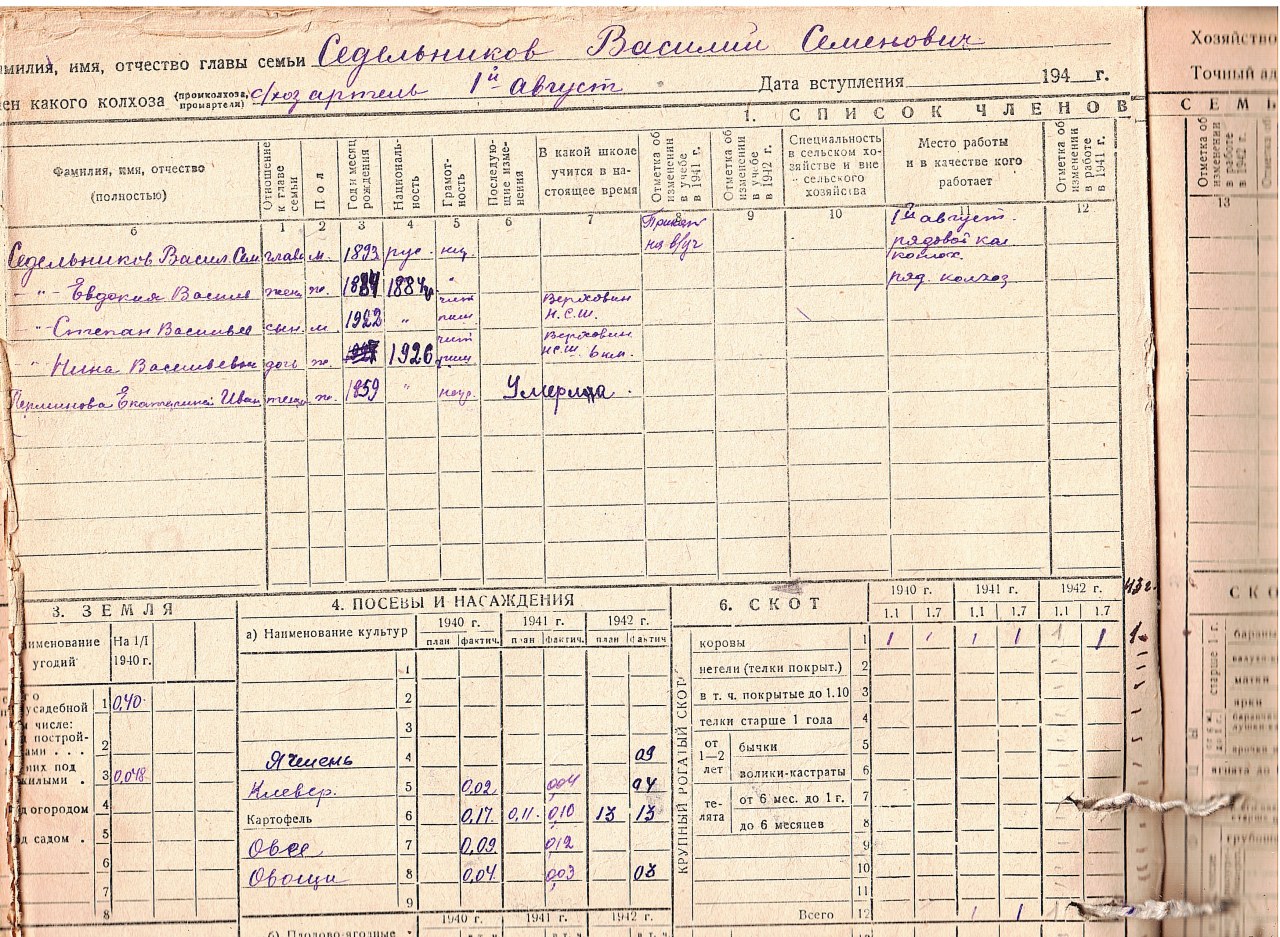 амилия, имя, отчество главы семьи Седельников Василий Семенович
ен какого колхоза (промколхоза, промартели) с/хоз артель 1й август Дата вступления 194 г.
1. СПИСОК ЧЛЕНОВ
Фамилия, имя, отчество (полностью) Отношение к главе семьи Пол Год и месяц рождения Националь-ность Грамот-ность Последую-щие изме-нения В какой школе учится в на-стоящее время Отметка об изменении в учебе в 1941 г. Отметка об изменении в учебе в 1942 г. Специальность в сельском хо-зяйстве и вне сельского хозяйства Место работы и в качестве кого работает Отметка об изменении в работе в 1941 г.
б 1 2 3 4 5 6 7 8 9 10 11 12
Седельников Васил. Сем глава м. 1893 рус. 1й август. рядовой колхоз.
-"- Евдокия Васил жен ж. 1884 " ряд. колхоз
-"- Степан Васильев сын. м 1922 " чит пиш Верховин Н.С.Ш.
-"- Нина Васильевн дочь ж. 1926 чит пиш Верховин НСШ 6 кл.
Екатерина Иван теща ж. 1859 " негр. Умерла.
3. ЗЕМЛЯ
аименование угодий На 1/I 1940 г.
усадебной 1 0,40
м числе:
построй-
ами . . . 2
них под
жилыми . 3 0,048
д огородом 4
д садом . 5
6
7
8
4. ПОСЕВЫ И НАСАЖДЕНИЯ
а) Наименование культур 1940 г. 1941 г. 1942 г.
план фактич. план фактич. план фактич
1
2
3
Ячмень 4 09
Клевер. 5 0,02 004 04
Картофель 6 0,17 0,11 010 13 13
Овес 7 0,09 012
Овощи 8 0,04 003 03
9
1940 г. 1941 г. 1942 г.
б) Плодово-ягодные
6. СКОТ
1940 г. 1941 г. 1942 г. 43 г.
1.1 1.7 1.1 1.7 1.1 1.7
КРУПНЫЙ РОГАТЫЙ СКОТ
коровы 1 1 1 1 1 1 1 1
нетели (телки покрыт.) 2
в т. ч. покрытые до 1.10 3
телки старше 1 года 4
от 1—2 лет бычки 5
волики-кастраты 6
те-лята от 6 мес. до 1 г. 7
до 6 месяцев 8
9
10
11
Всего 12 1 1
Хозяйство
Точный ад
СЕМЬ
Отметка об изменении в работе в 1942 г.
13
СКО
старше 1 г.
бараны
матки
ярки